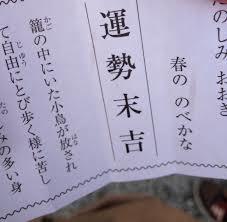 たのしみ おおき
春の のべかな
運勢末吉
籠の中にいた小鳥が放され
て自由にとび歩く様に苦し
みの多い身